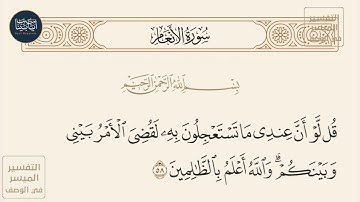 سُورَةُ الأَنْعَامِ
بِسْمِ اللَّهِ الرَّحْمَٰنِ الرَّحِيمِ
قُل لَّوْ أَنَّ عِندِى مَا تَسْتَعْجِلُونَ بِهِۦ لَقُضِىَ ٱلْأَمْرُ بَيْنِى
وَبَيْنَكُمْ ۗ وَٱللَّهُ أَعْلَمُ بِٱلظَّٰلِمِينَ ٥٨
التفسير
الميسر
في الوصف
التفسير
الميسر
في الوصف